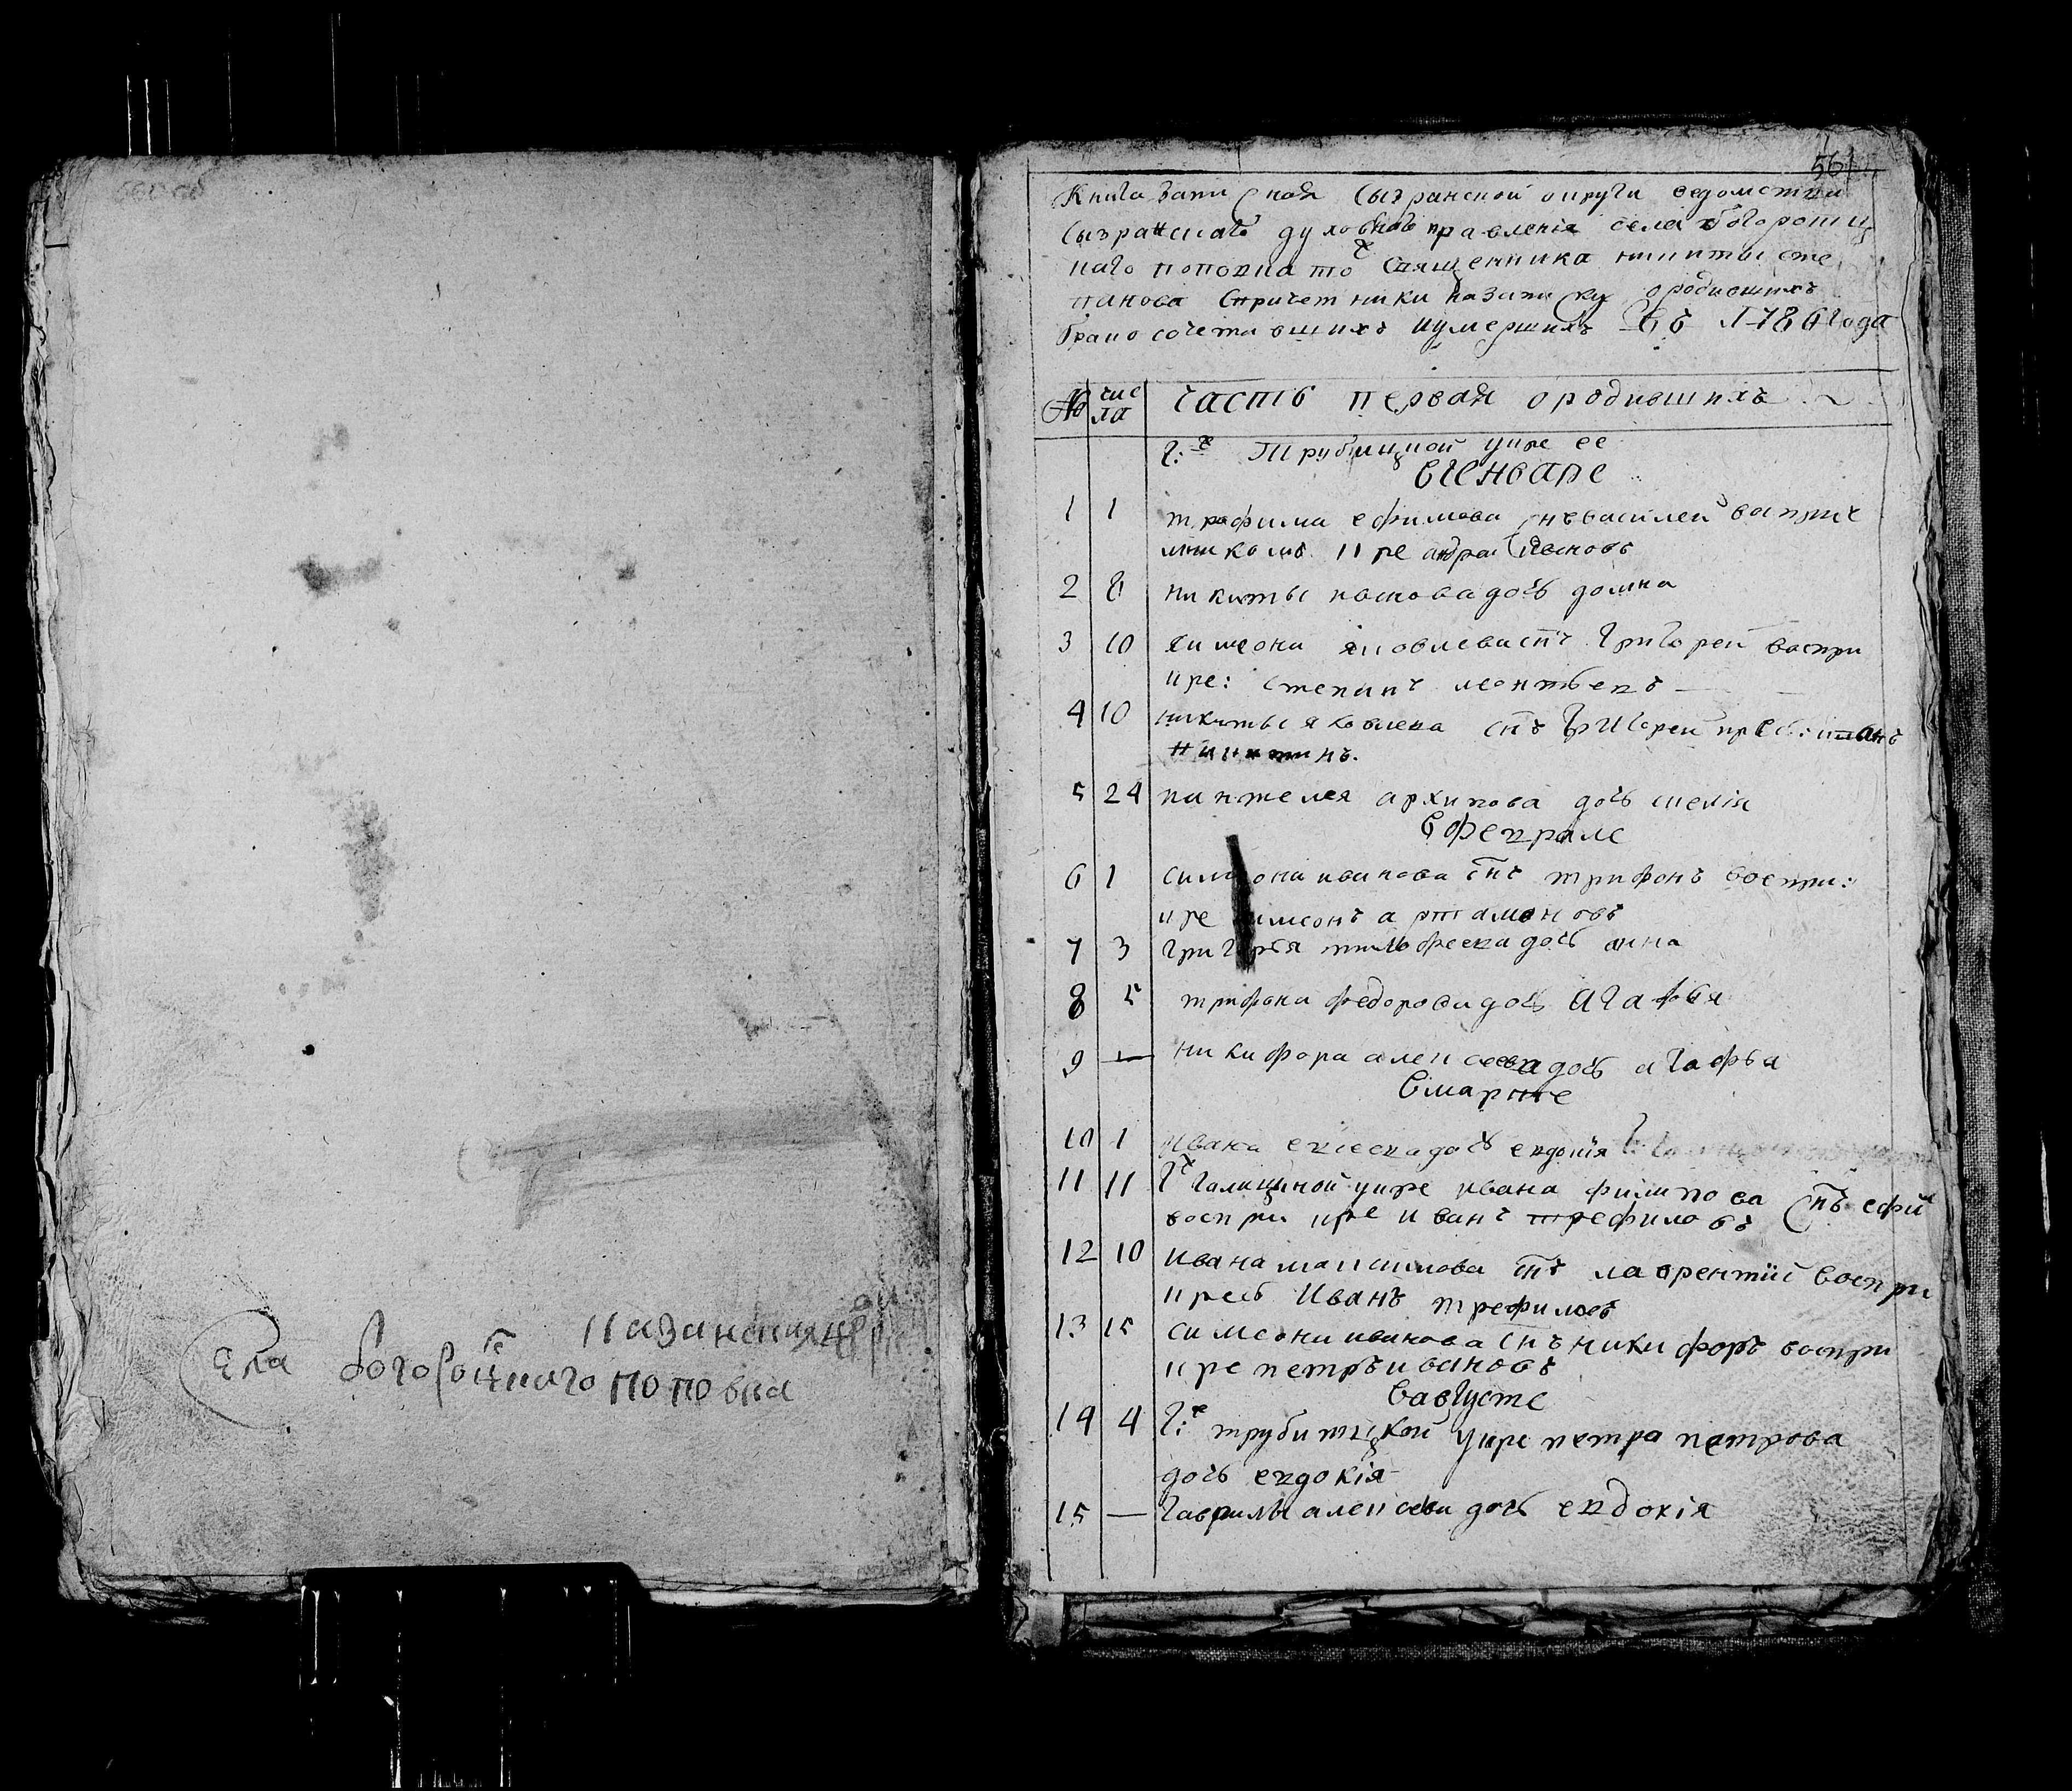 Казанския ц҃рк
Села богороцкаго поповка
561
Книга записная Сызранской округи ведомства
Сызранскаго духовнаго правления села богородиц
каго поповка тож Священника никиты сте
панова Спричетники назаписку ородившихъ
бракосочетавшихъ иумершихъ 1786 года
№ числа часть первая ородившихъ
г:ж Трубицкой укре ее
вгенваре
1 1 трофима ефимова снъ василей воспри
никомъ кре андрей Ивановъ
2 8 никиты иванова дочь домна
3 10 симеона яковлева снъ григорей воспри
кре: степанъ леонтьевъ
4 10 никиты яковлева снъ григорей крес: иванъ
никитинъ.
5 24 пантелея архипова дочь
вфеврале
6 1 симиона иванова снъ трифонъ воспри:
кре симеонъ артамоновъ
7 3 григорья тимофеева дочь анна
8 5 трифона федорова дочь агафья
9 — никифора алексеева дочь агафья
вмарте
10 1 Ивана евсеева дочь евдокия
11 11 гж галицыной укре ивана филипова снъ ефим
воспри кре иванъ трефиловъ
12 10 ивана максимова снъ лаврентий воспри
кресь Иванъ трефиловъ
13 15 симеона иванова снъ никифоръ воспри
кре петръ ивановъ
вавгусте
14 4 г:ж трубитцкой укре петра петрова
дочь евдокия
15 — гаврилы алексеева дочь евдокия